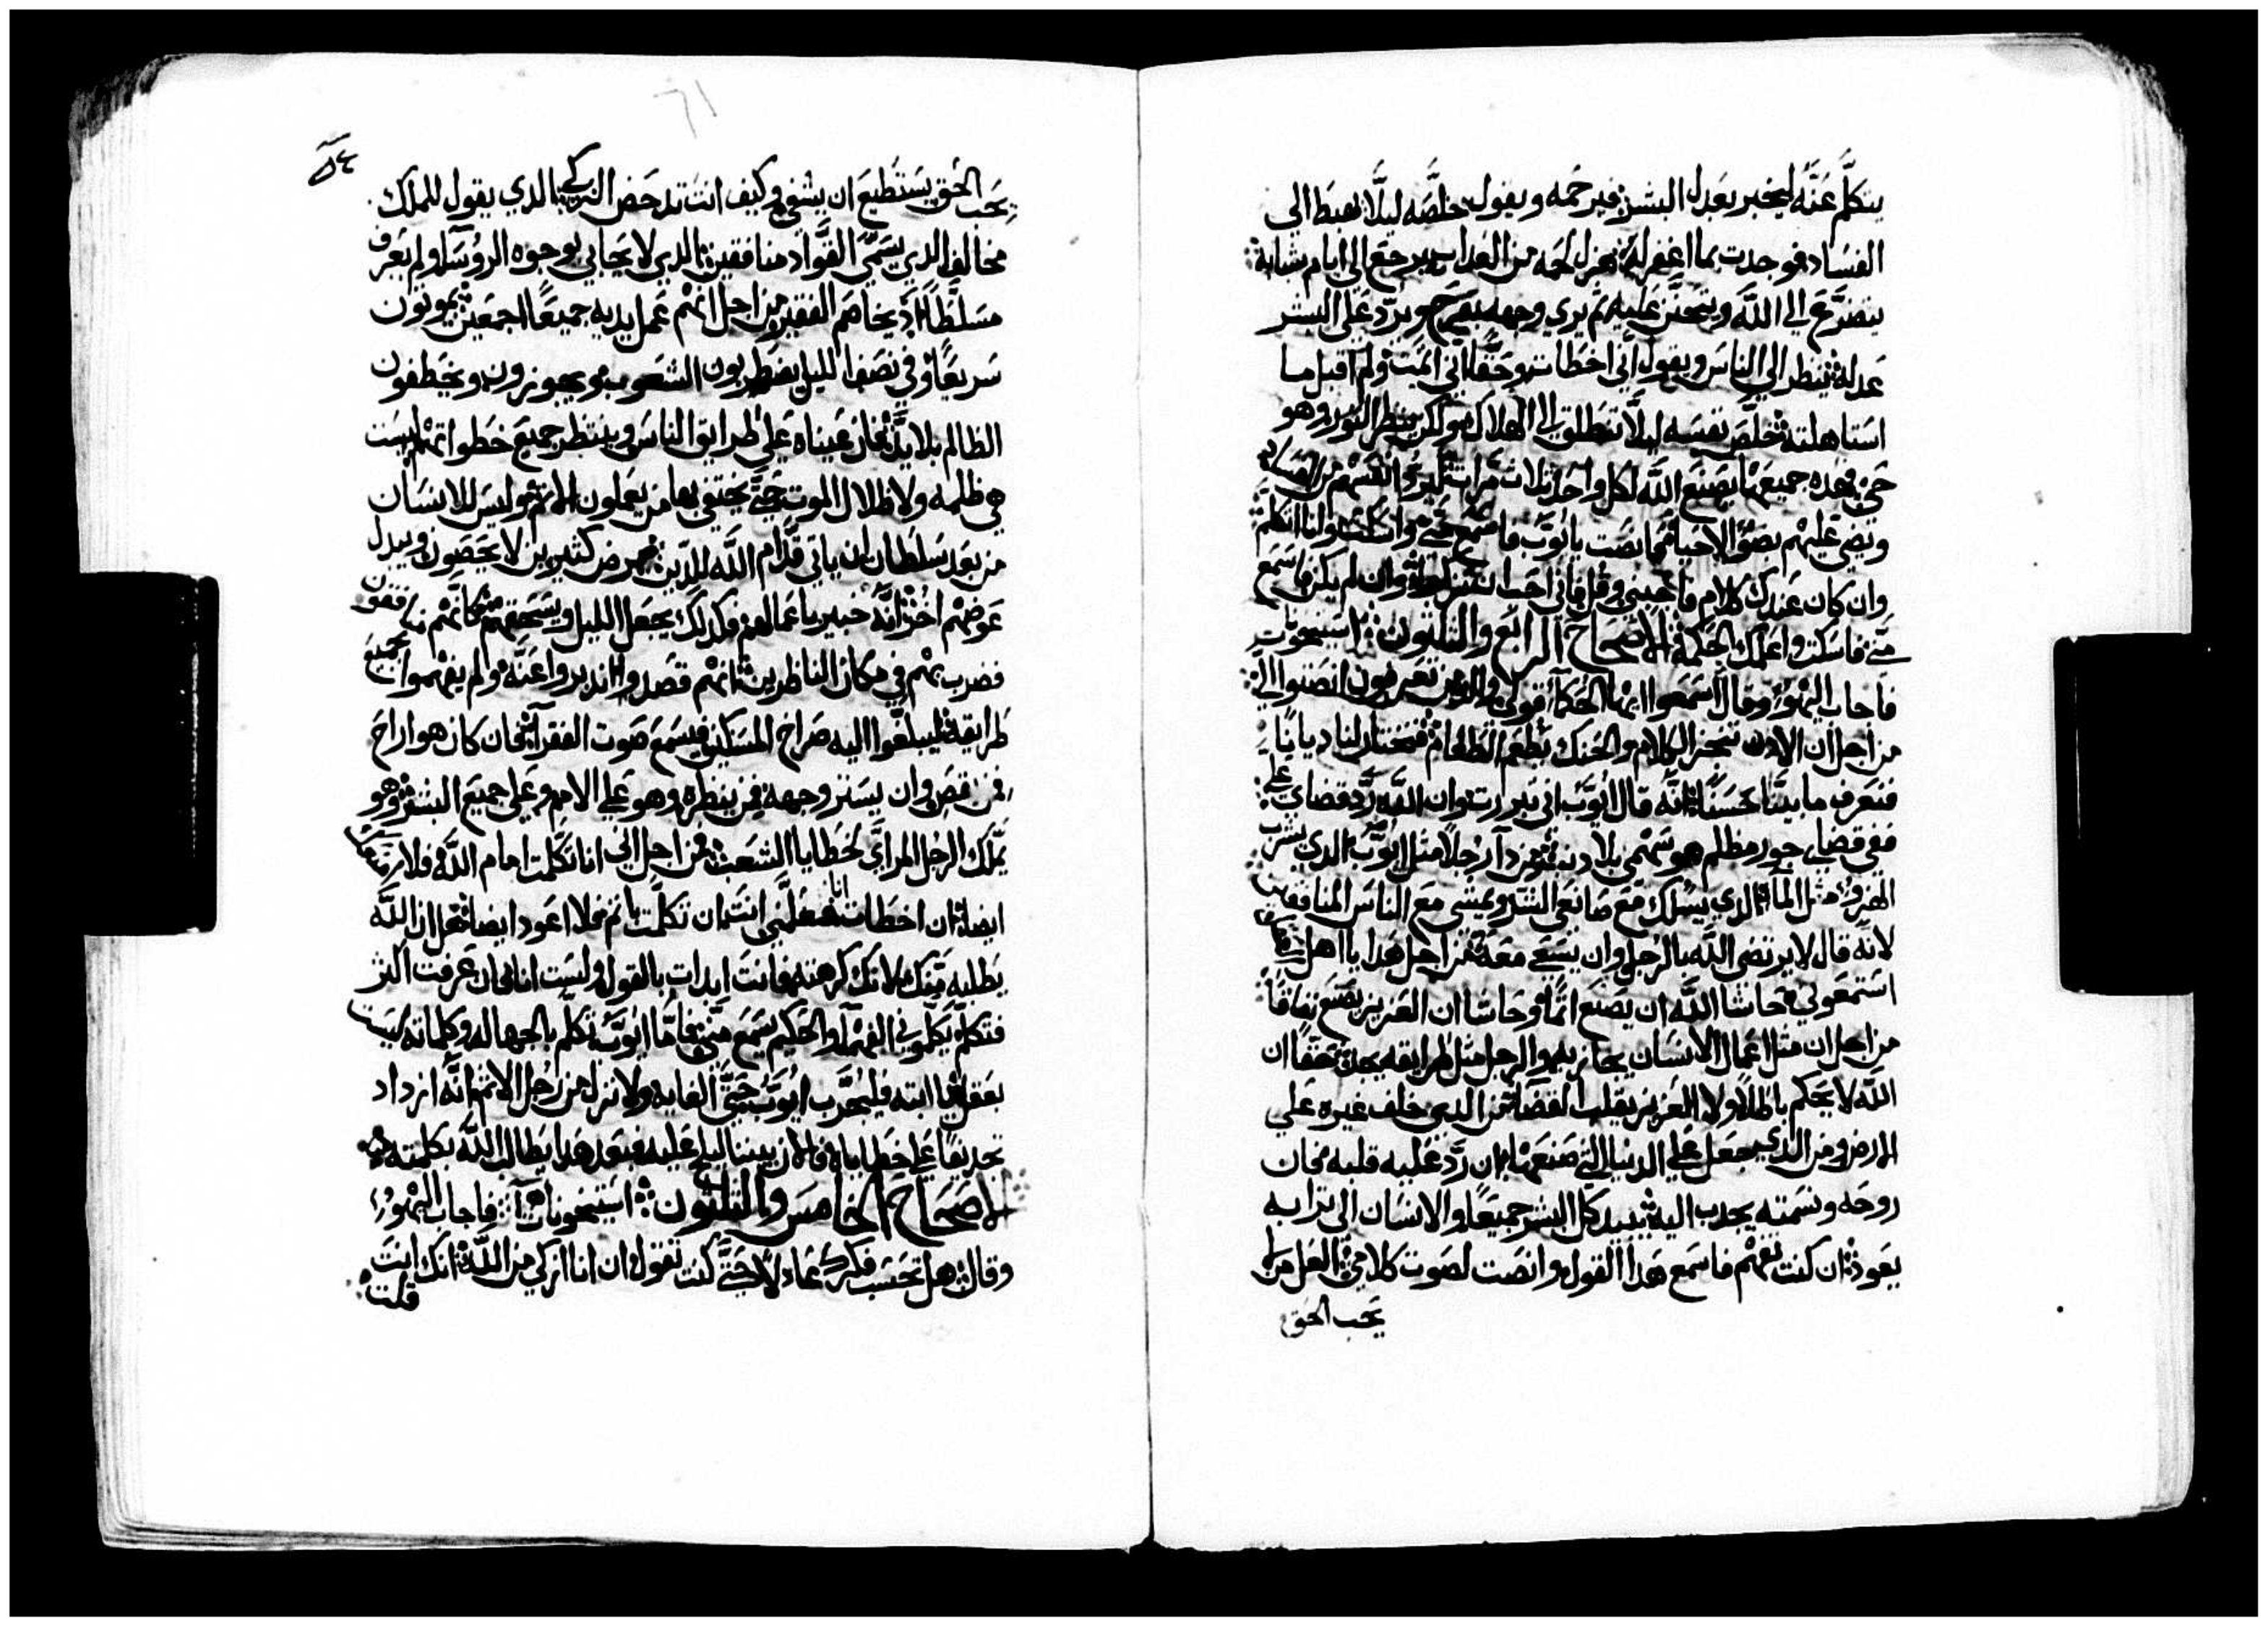 يتكلم عنه ليخبر بعدل البشر فيرحمه ويقول خلصه ليلا يهبط الي
الفساد فوجدت بما اغفر له نحزل لحمه من العداب يرجع الي ايام شبابه
يتضرع الي الله ويتحنن عليه ثم يري وجهه بفرح ويرد علي البشر
عدله ينظر الي الناس ويقول اني اخطات وحقا اني اتمت ولم اقبل ما
استاهلته فخلص نفسه ليلا تنطلق الي الهلاك ولكن ينظر النور وهو
حي فهده جميعها يصنع الله لكل واحد ثلاث مرات ليرد انفسهم من الفساد
ويضي عليهم بضو الاحيا فيما انصت يا ايوب فاسمع مني وانا اتكلم
وان كان عندك كلام فاجبني وقل فاني احب ان وان لم يكن فاسمع
مني فاسكت واعلمك الحكمة الاصحاح الرابع والثلثون استيخونات
فاجاب اليهو وقال اسمعوا ايها الحكما قولي والدين تعرفون انصتوا الي
من اجل ان الادن تمتحن الكلام والحنك يطعم الطعام فنختار لنا ديانا
فنعرف ما بيننا حسنا انه قال ايوب اني تبررت وان الله رد قضاي علي
ففي قضاي جور مظلم هو سهمي بلا دنب من دا رجلا مثل ايوب الدي يشرب
الهزو مثل الما الدي يسلك مع صانعي الشر ويمشي مع الناس المنافقين
لانه قال لا يرتضي الله بالرجل وان يسعي معه من اجل هدا يا اهل
استمعو لي حاشا الله ان يصنع اتما وحاشا ان العزيز يصنع نفاقا
من اجل ان مثل اعمال الانسان يجازيه والرجل مثل طرايقه يجده حقا ان
الله لا يحكم باطلا ولا العزيز يقلب القضا من الدي خلف غيره علي
الارض ومن الدي جعل علي الدنيا التي صنعها ان رد عليه قلبه فان
روحه ونسمته يجدب اليه يبيد كل البشر جميعا والانسان الي ترابه
يعود ان كنت تفهم فاسمع هدا القول وانصت لصوت كلامي العل من لا
يحب الحق
٥٤
يحب الحق يستطيع ان يشفي وكيف انت تدحض الزكي الدي يقول للملك
مخالف الدي يسمي القواد منافقين الدي لا يحابي بوجوه الروسا ولم يعرف
مسلطا اد يخاصم الفقير من اجل انهم عمل يديه جميعا اجمعين يموتون
سريعا وفي نصف الليل يضطربون الشعوب ويجوزون ويخطفون
الظالم بلا يد فان عيناه علي طرايق الناس وينتظر جميع خطواتهم ليست
هي ظلمه ولا ظلال الموت حتي يختفي بها من يعملون الاتم وليس للانسان
من بعد سلطان ان ياتي قدام الله للدين يمرض كثيرين لا يحصون ويبدل
عوضهم اخر انه خبير باعمالهم فكدلك يجعل الليل ويسحقهم كانهم منافقون
فضرب بهم في مكان الناظرين انهم قصدوا ادبروا عنه ولم يفهموا جميع
طرايقه ليبلغوا اليه صراخ المسكين فيسمع صوت الفقرا فان كان هو اراح
فمن قضي وان يستر وجهه فمن ينظره وهو علي الامم وعلي جميع البشر وهو
يملك الرجل المراي لخطايا الشعب من اجل اني انا تكلمت امام الله فلا
ايضا ان اخطات انا فعلمني انت ان تكلمت باتم فلا اعود ايضا هل ان الله
يطلبه منك لانك كرهته فانت ابدات بالقول وليست انا فان عرفت اكثر
فتكلم يكلموني الفهما والحكيم يسمع مني فاما ايوب تكلم بالجهاله وكلماته ليست
بعقل يا ابته فليجرب ايوب حتي الغايه ولا تزل من رجل الاتم انه ازداد
تجديفا علي خطاياه فالان بيننا عليه فبعد هدا يطالب الله بكلمته
الاصحاح الخامس والثلثون استيخونات فاجاب اليهو
وقال هل تحسب فكرك عادلا حتي كنت تقول ان انا ازكي من الله انك انت
قلت